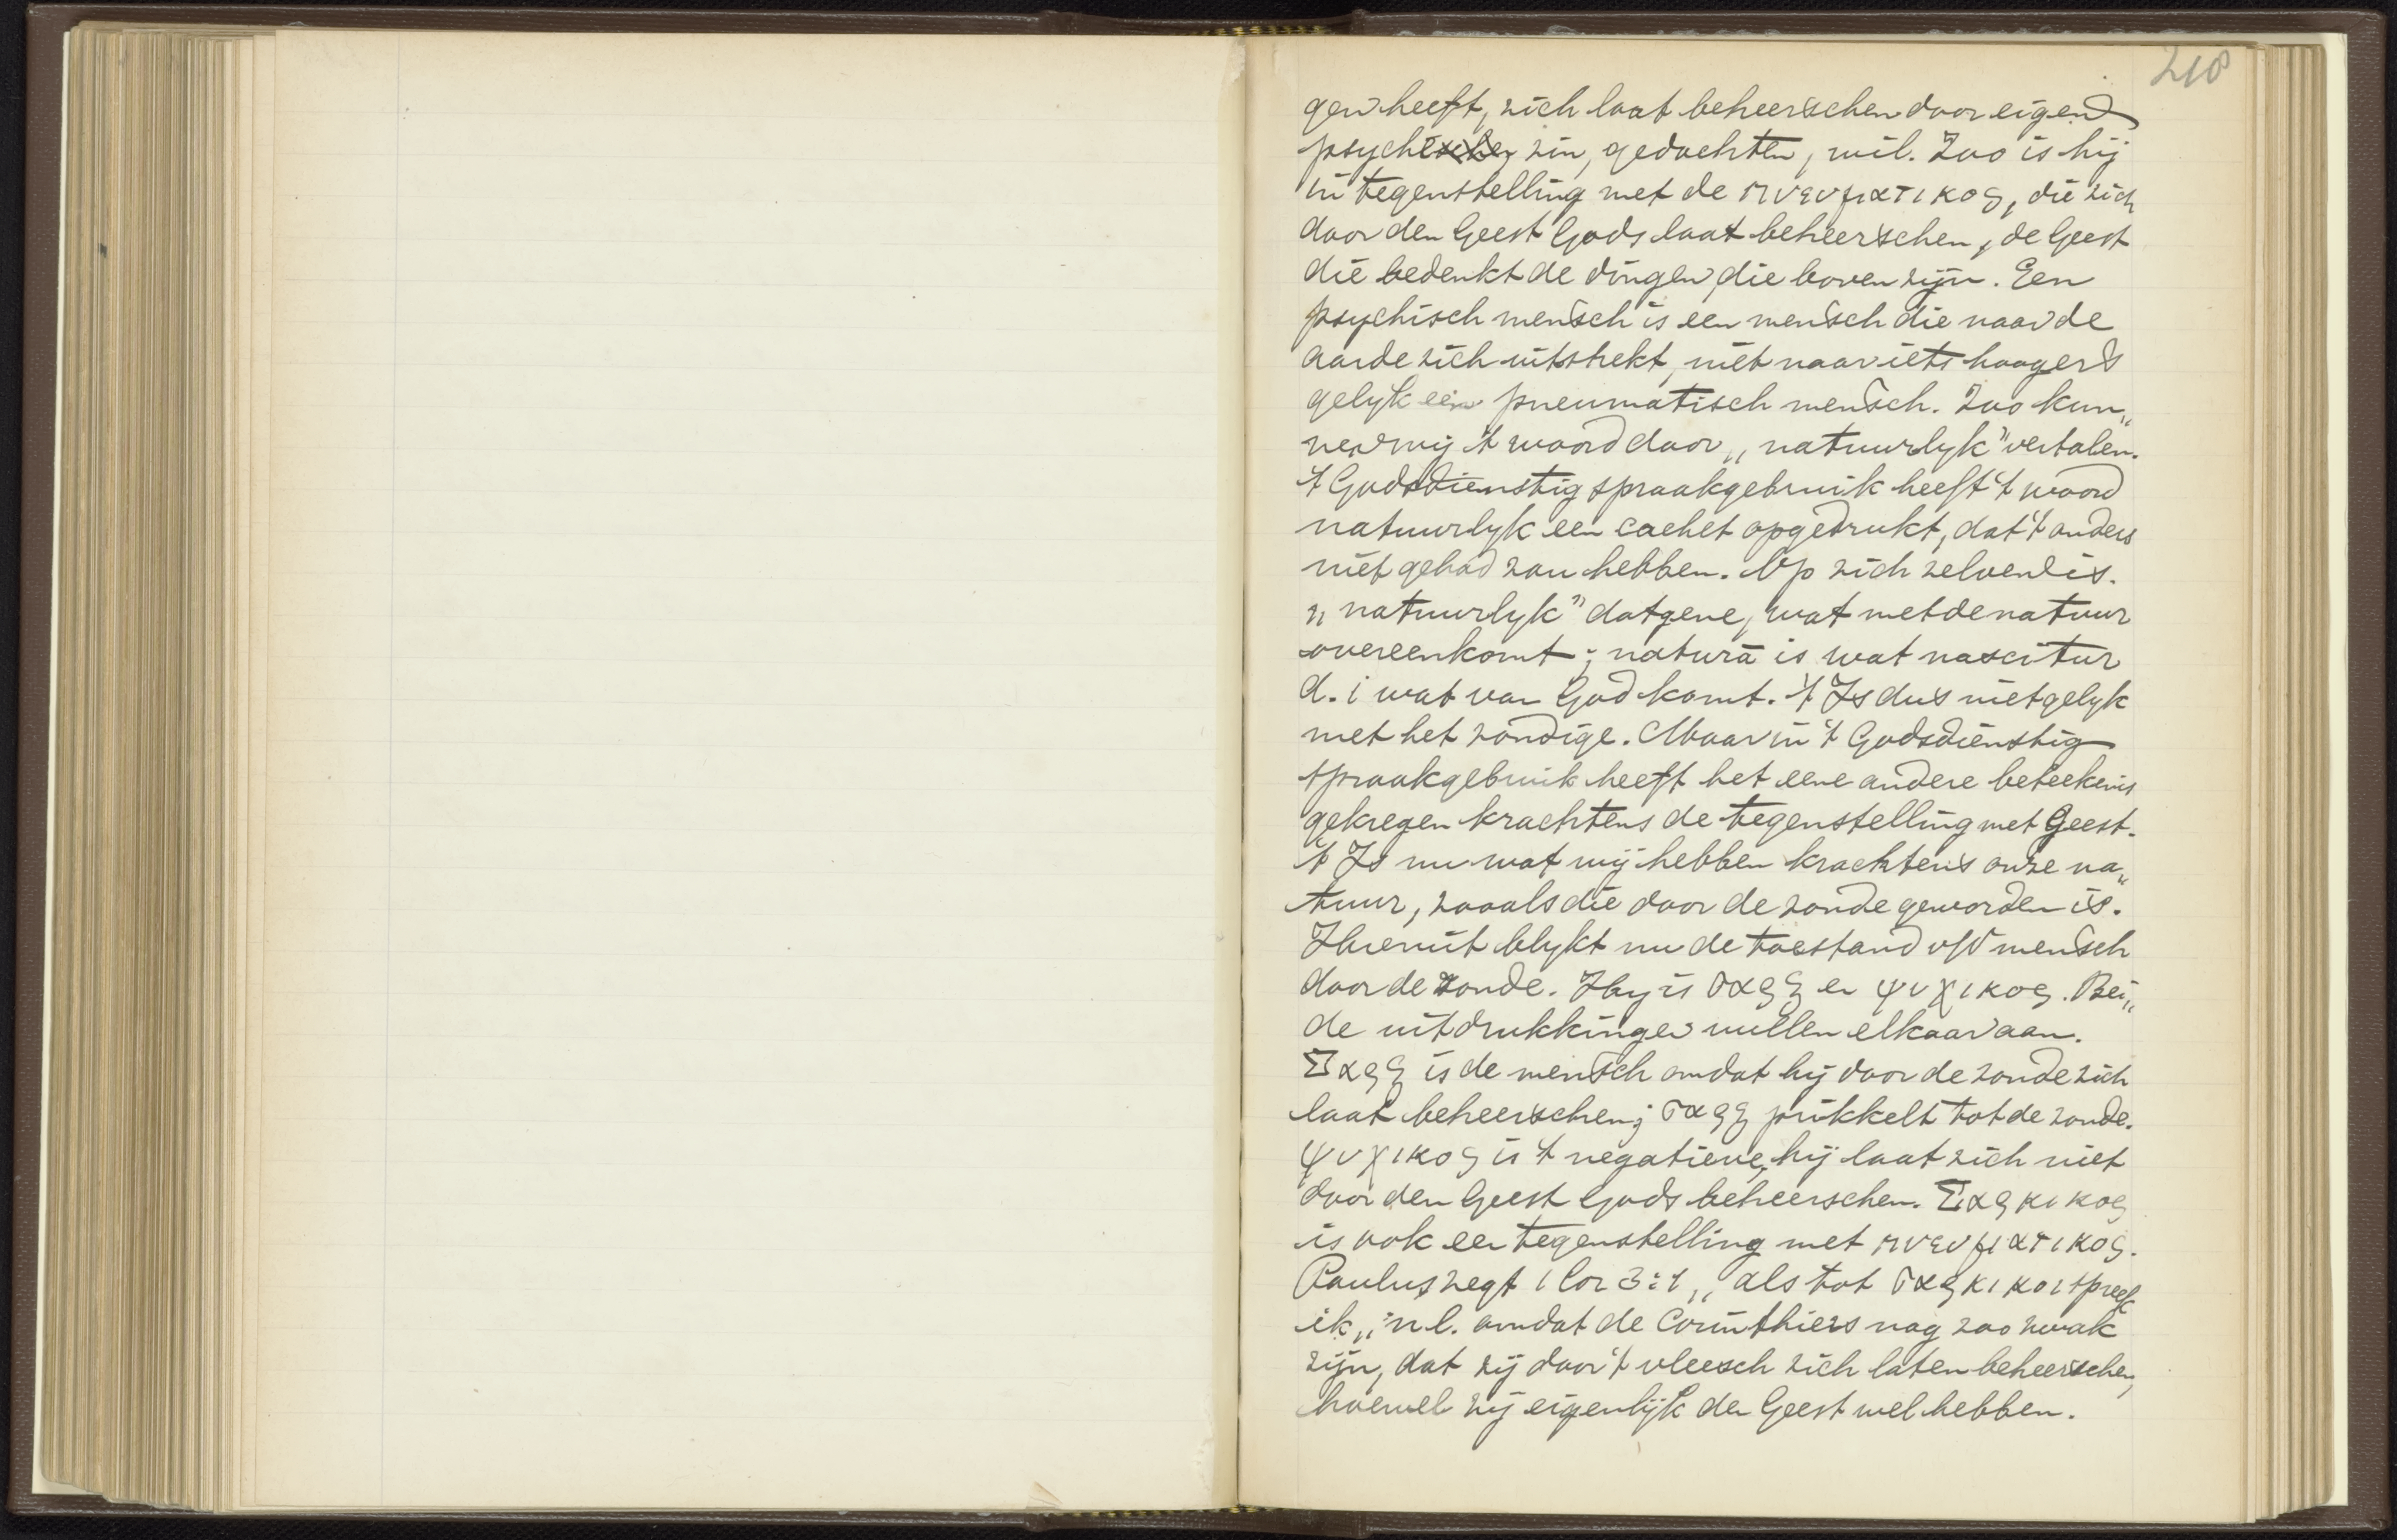 218
gen heeft, zich laat beheerschen door eigen
psychische zin, gedachten, wil. Zoo is hij
in tegenstelling met de πνευματικος, die zich
door den Geest Gods laat beheerschen, de Geest
die bedenkt de dingen, die boven zijn. Een
psychisch mensch is een mensch die naar de
aarde zich uitstrekt, niet naar iets hoogers
gelyk een pneumatisch mensch. Zoo kun„
nen wij 't woord door „natuurlyk” vertalen.
't Godsdienstig spraakgebruik heeft 't woord
natuurlyk een cachet opgedrukt, dat 't anders
niet gehad zou hebben. Op zich zelven is.
„natuurlyk” datgene, wat met de natuur
overeenkomt; natura is wat nascitur
d. i wat van God komt. 't Is dus niet gelyk
met het zondige. Maar in 't Godsdienstig
spraakgebruik heeft het eene andere beteekenis
gekregen krachtens de tegenstelling met Geest.
't Is nu wat wij hebben krachtens onze na„
tuur, zooals die door de zonde geworden is.
Hieruit blykt nu de toestand v/d mensch
door de zonde. Hy is σαρξ en ψυχικος. Bei„
de uitdrukkingen vullen elkaar aan.
Σαρξ is de mensch omdat hij door de zonde zich
laat beheerschen; σαρξ prikkelt tot de zonde.
ψυχικος is 't negatieve, hij laat zich niet
door den Geest Gods beheerschen. Σαρκικος
is ook een tegenstelling met πνευματικος.
Paulus zegt 1 Cor 3:1, „als tot σαρκικοι spreek
ik„ n.l. omdat de Corinthiers nog zoo zwak
zijn, dat zij door 't vleesch zich laten beheerschen,
hoewel zij eigenlijk den Geest wel hebben.